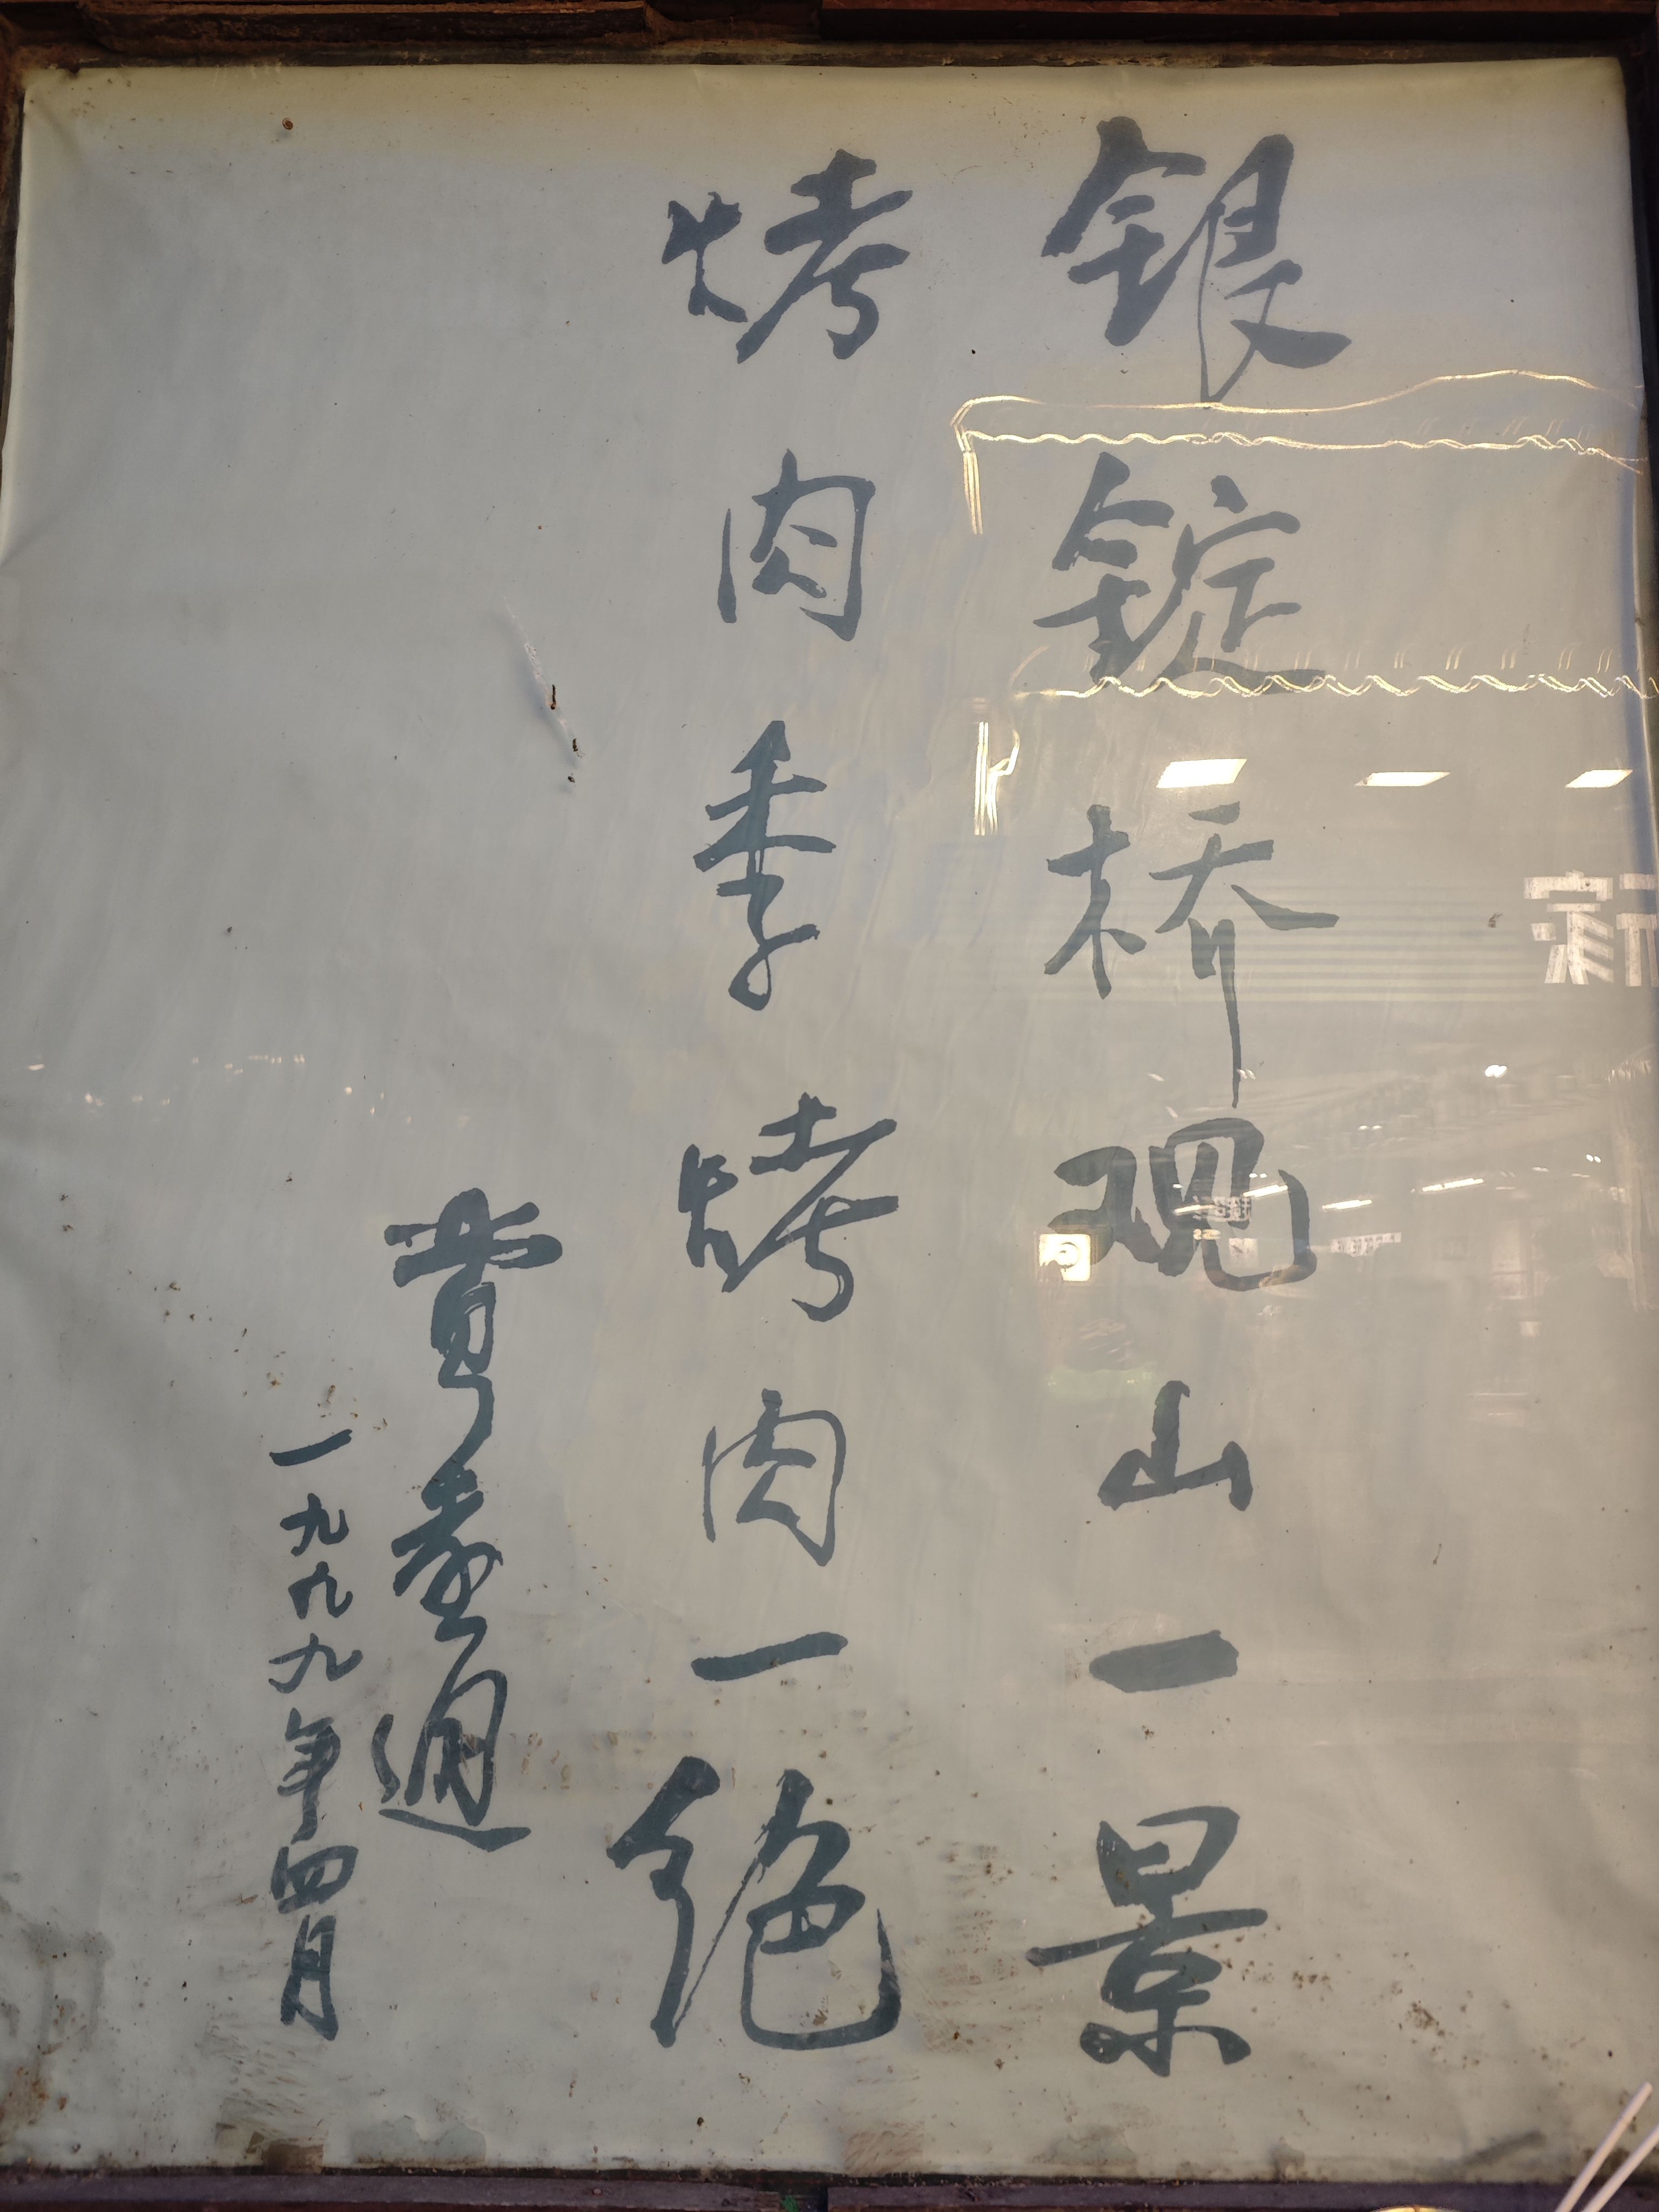 银锭桥观山一景
烤肉季烤肉一绝
費孝通
一九九九年四月